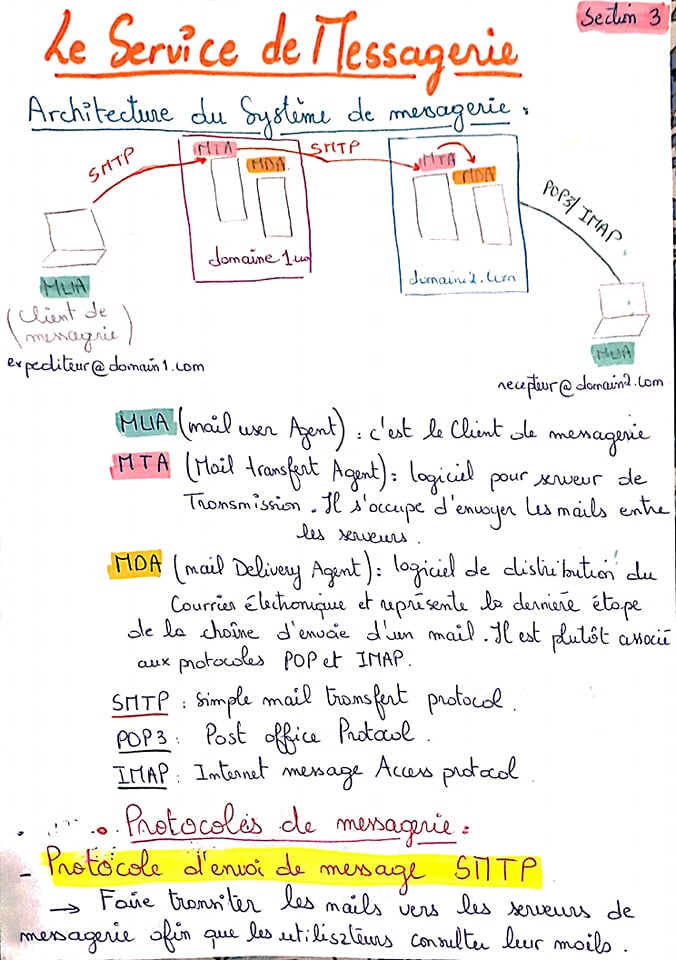 Section 3
Le Service de Messagerie
Architecture du Système de messagerie :
SMTP
MTA
MDA
SMTP
MTA
MDA
POP3/ IMAP
domaine1.com
domaine2.com
MUA
(Client de
messagerie)
expediteur@domain1.com
MUA
recepteur@domain2.com
MUA (mail user Agent) : c'est le Client de messagerie
MTA (Mail transfert Agent) : logiciel pour serveur de
Transmission. Il s'occupe d'envoyer les mails entre
les serveurs.
MDA (mail Delivery Agent) : logiciel de distribution du
Courrier électronique et représente la dernière étape
de la chaîne d'envoie d'un mail. Il est plutôt associé
aux protocoles POP et IMAP.
SMTP : Simple mail transfert protocol.
POP3 : Post office Protocol.
IMAP : Internet message Access protocol
Protocoles de messagerie :
- Protocole d'envoi de message SMTP
→ Faire transiter les mails vers les serveurs de
messagerie afin que les utiliszteurs consulter leur mails.